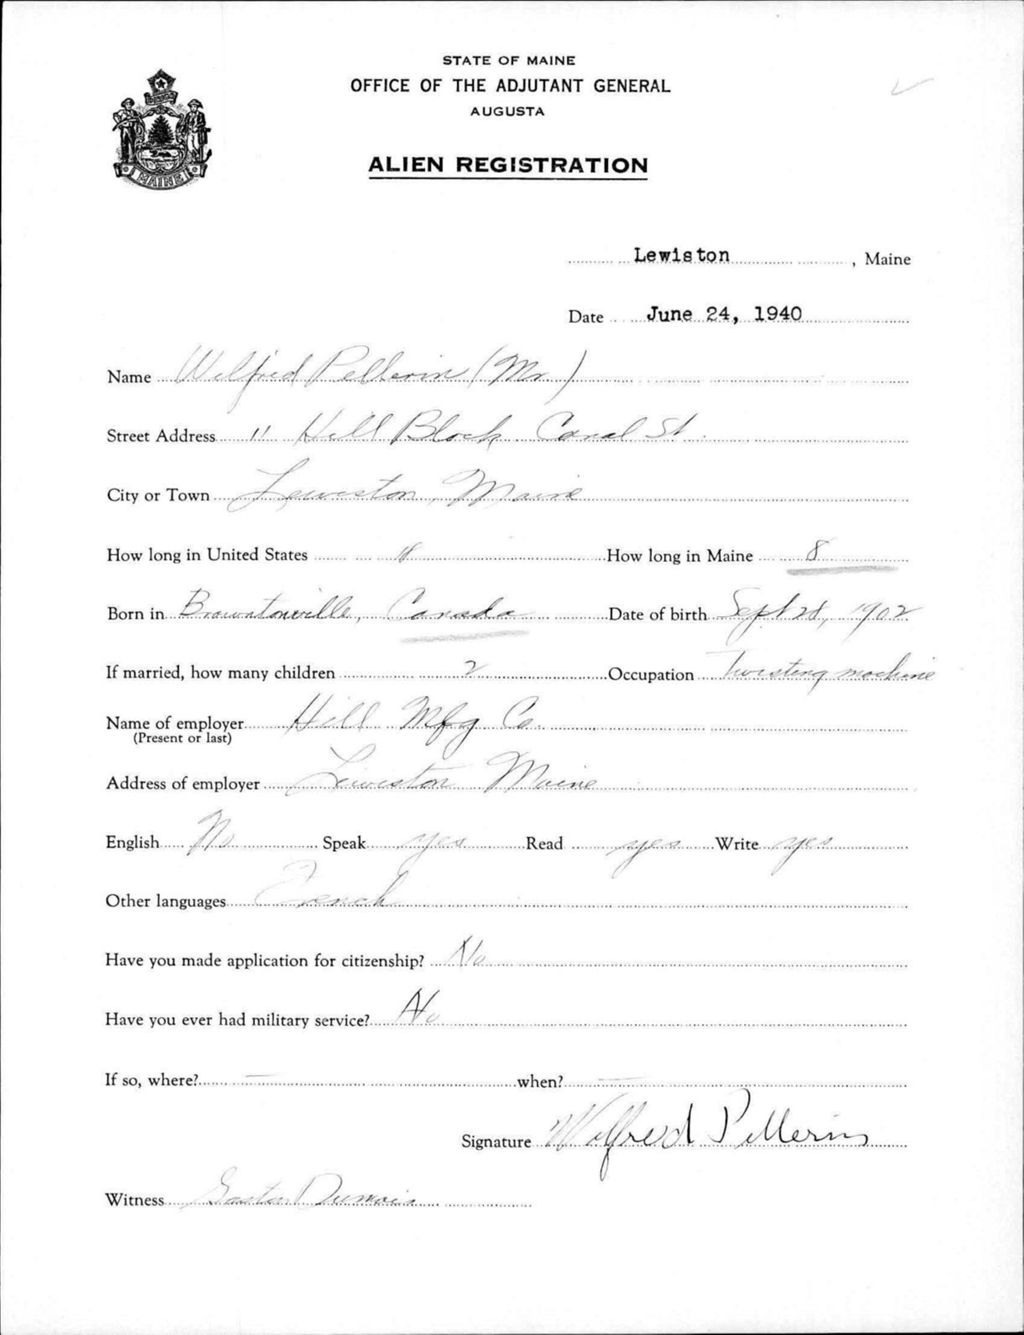 STATE OF MAINE
OFFICE OF THE ADJUTANT GENERAL
AUGUSTA
ALIEN REGISTRATION
MAINE
Lewiston, Maine
Date June 24, 1940
Name Wilfred Pellerin (Mr.)
Street Address 11 Hill Block Canal St.
City or Town Lewiston, Maine
How long in United States How long in Maine 8
Born in Canada Date of birth Sept 28, 1902
If married, how many children 2 Occupation Twisting machine
Name of employer Hill Mfg Co.
(Present or last)
Address of employer Lewiston Maine
English No Speak yes Read yes Write yes
Other languages French
Have you made application for citizenship? No
Have you ever had military service? No
If so, where? — when? —
Signature Wilfred Pellerin
Witness Dumais